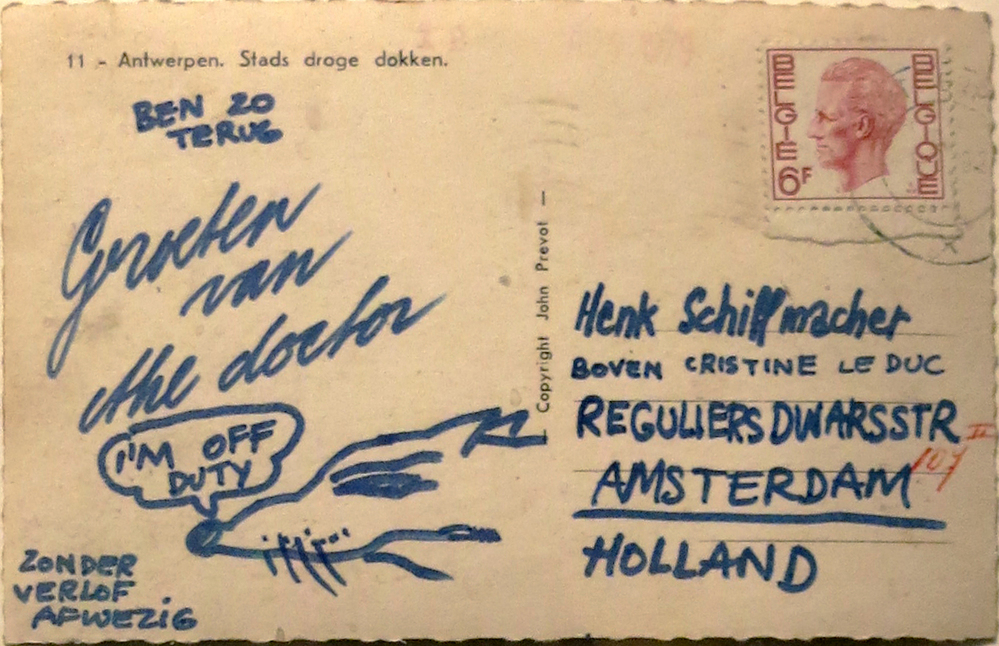 11 - Antwerpen. Stads droge dokken.
BEN ZO
TERUG
Groeten
van
the doctor
I'M OFF
DUTY
ZONDER
VERLOF
AFWEZIG
Copyright John Prevot
BELGIE
BELGIQUE
6F
Henk Schiffmacher
BOVEN CRISTINE LE DUC
REGULIERSDWARSSTR
107 II
AMSTERDAM
HOLLAND